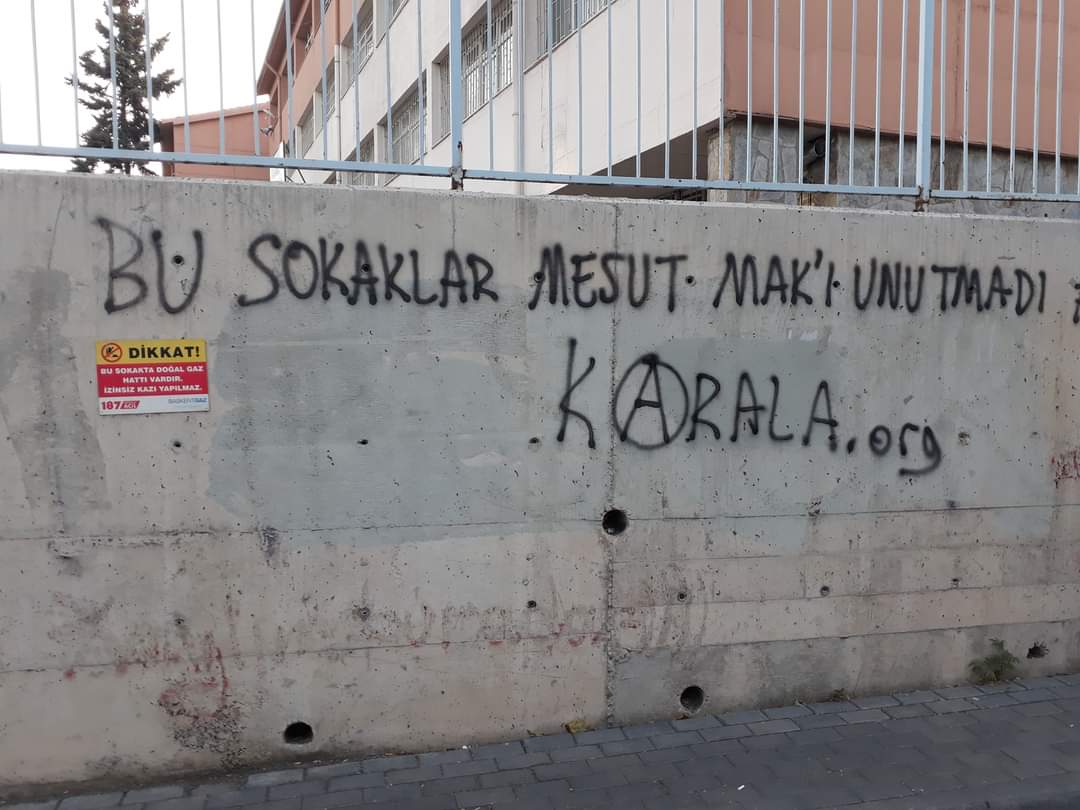 BU SOKAKLAR MESUT MAK'I UNUTMADI
KARALA.org
DİKKAT!
BU SOKAKTA DOĞAL GAZ
HATTI VARDIR.
İZİNSİZ KAZI YAPILMAZ.
187 ACİL BAŞKENTGAZ